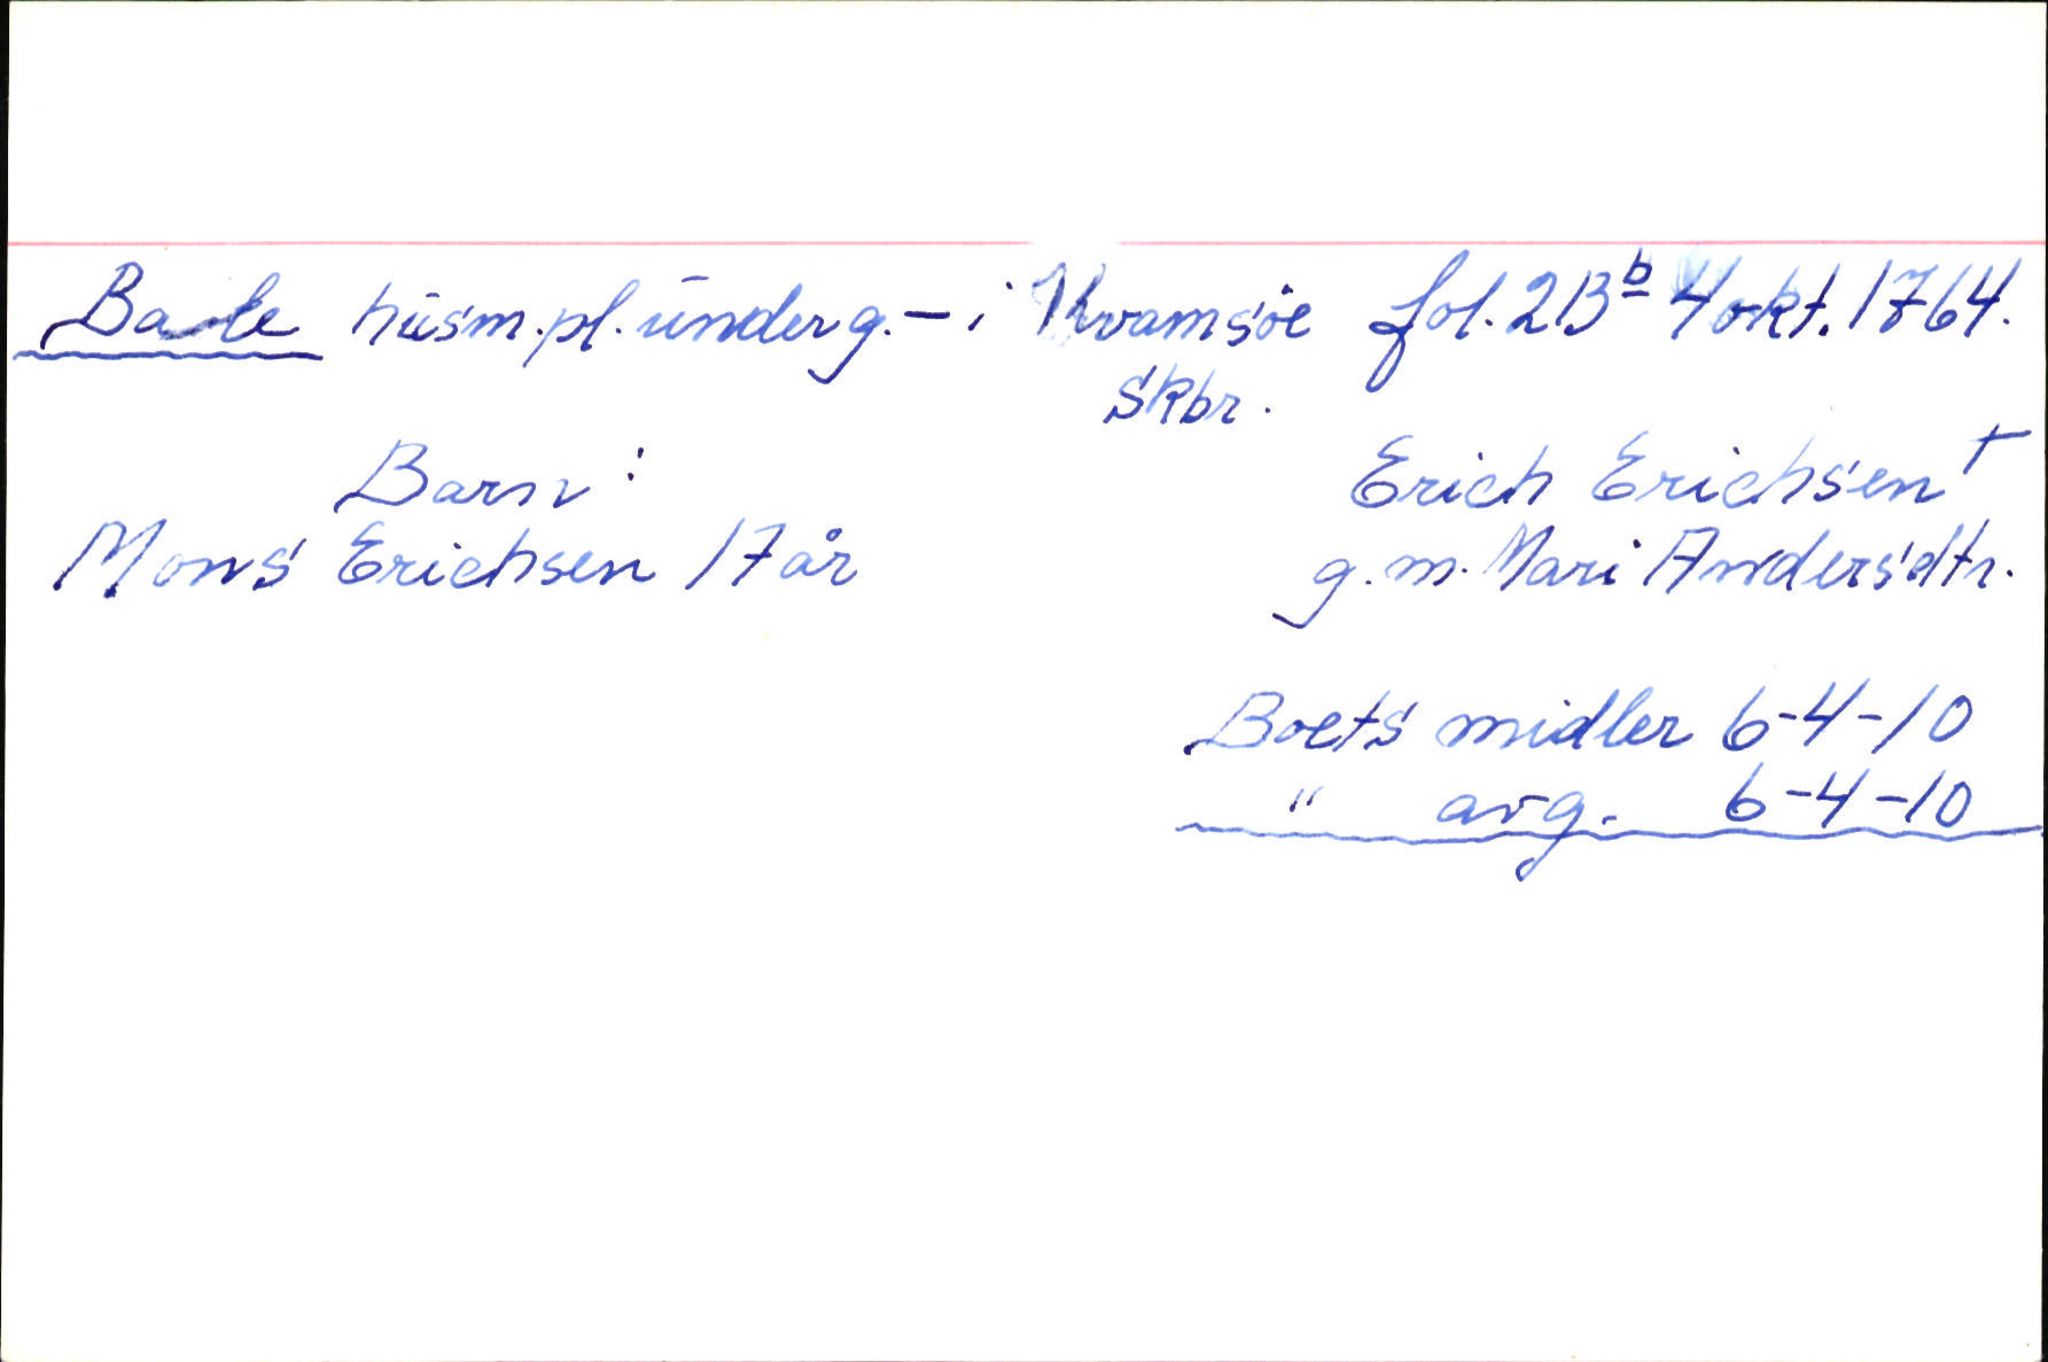 Bale husm.pl. under g. - i Kvamsøe fol. 213b 4 okt. 1764.
Skbr.
Barn: Erich Erichsen †
Mons Erichsen 17 år g.m. Mari Andersdtr.
Boets midler 6-4-10
" avg. 6-4-10